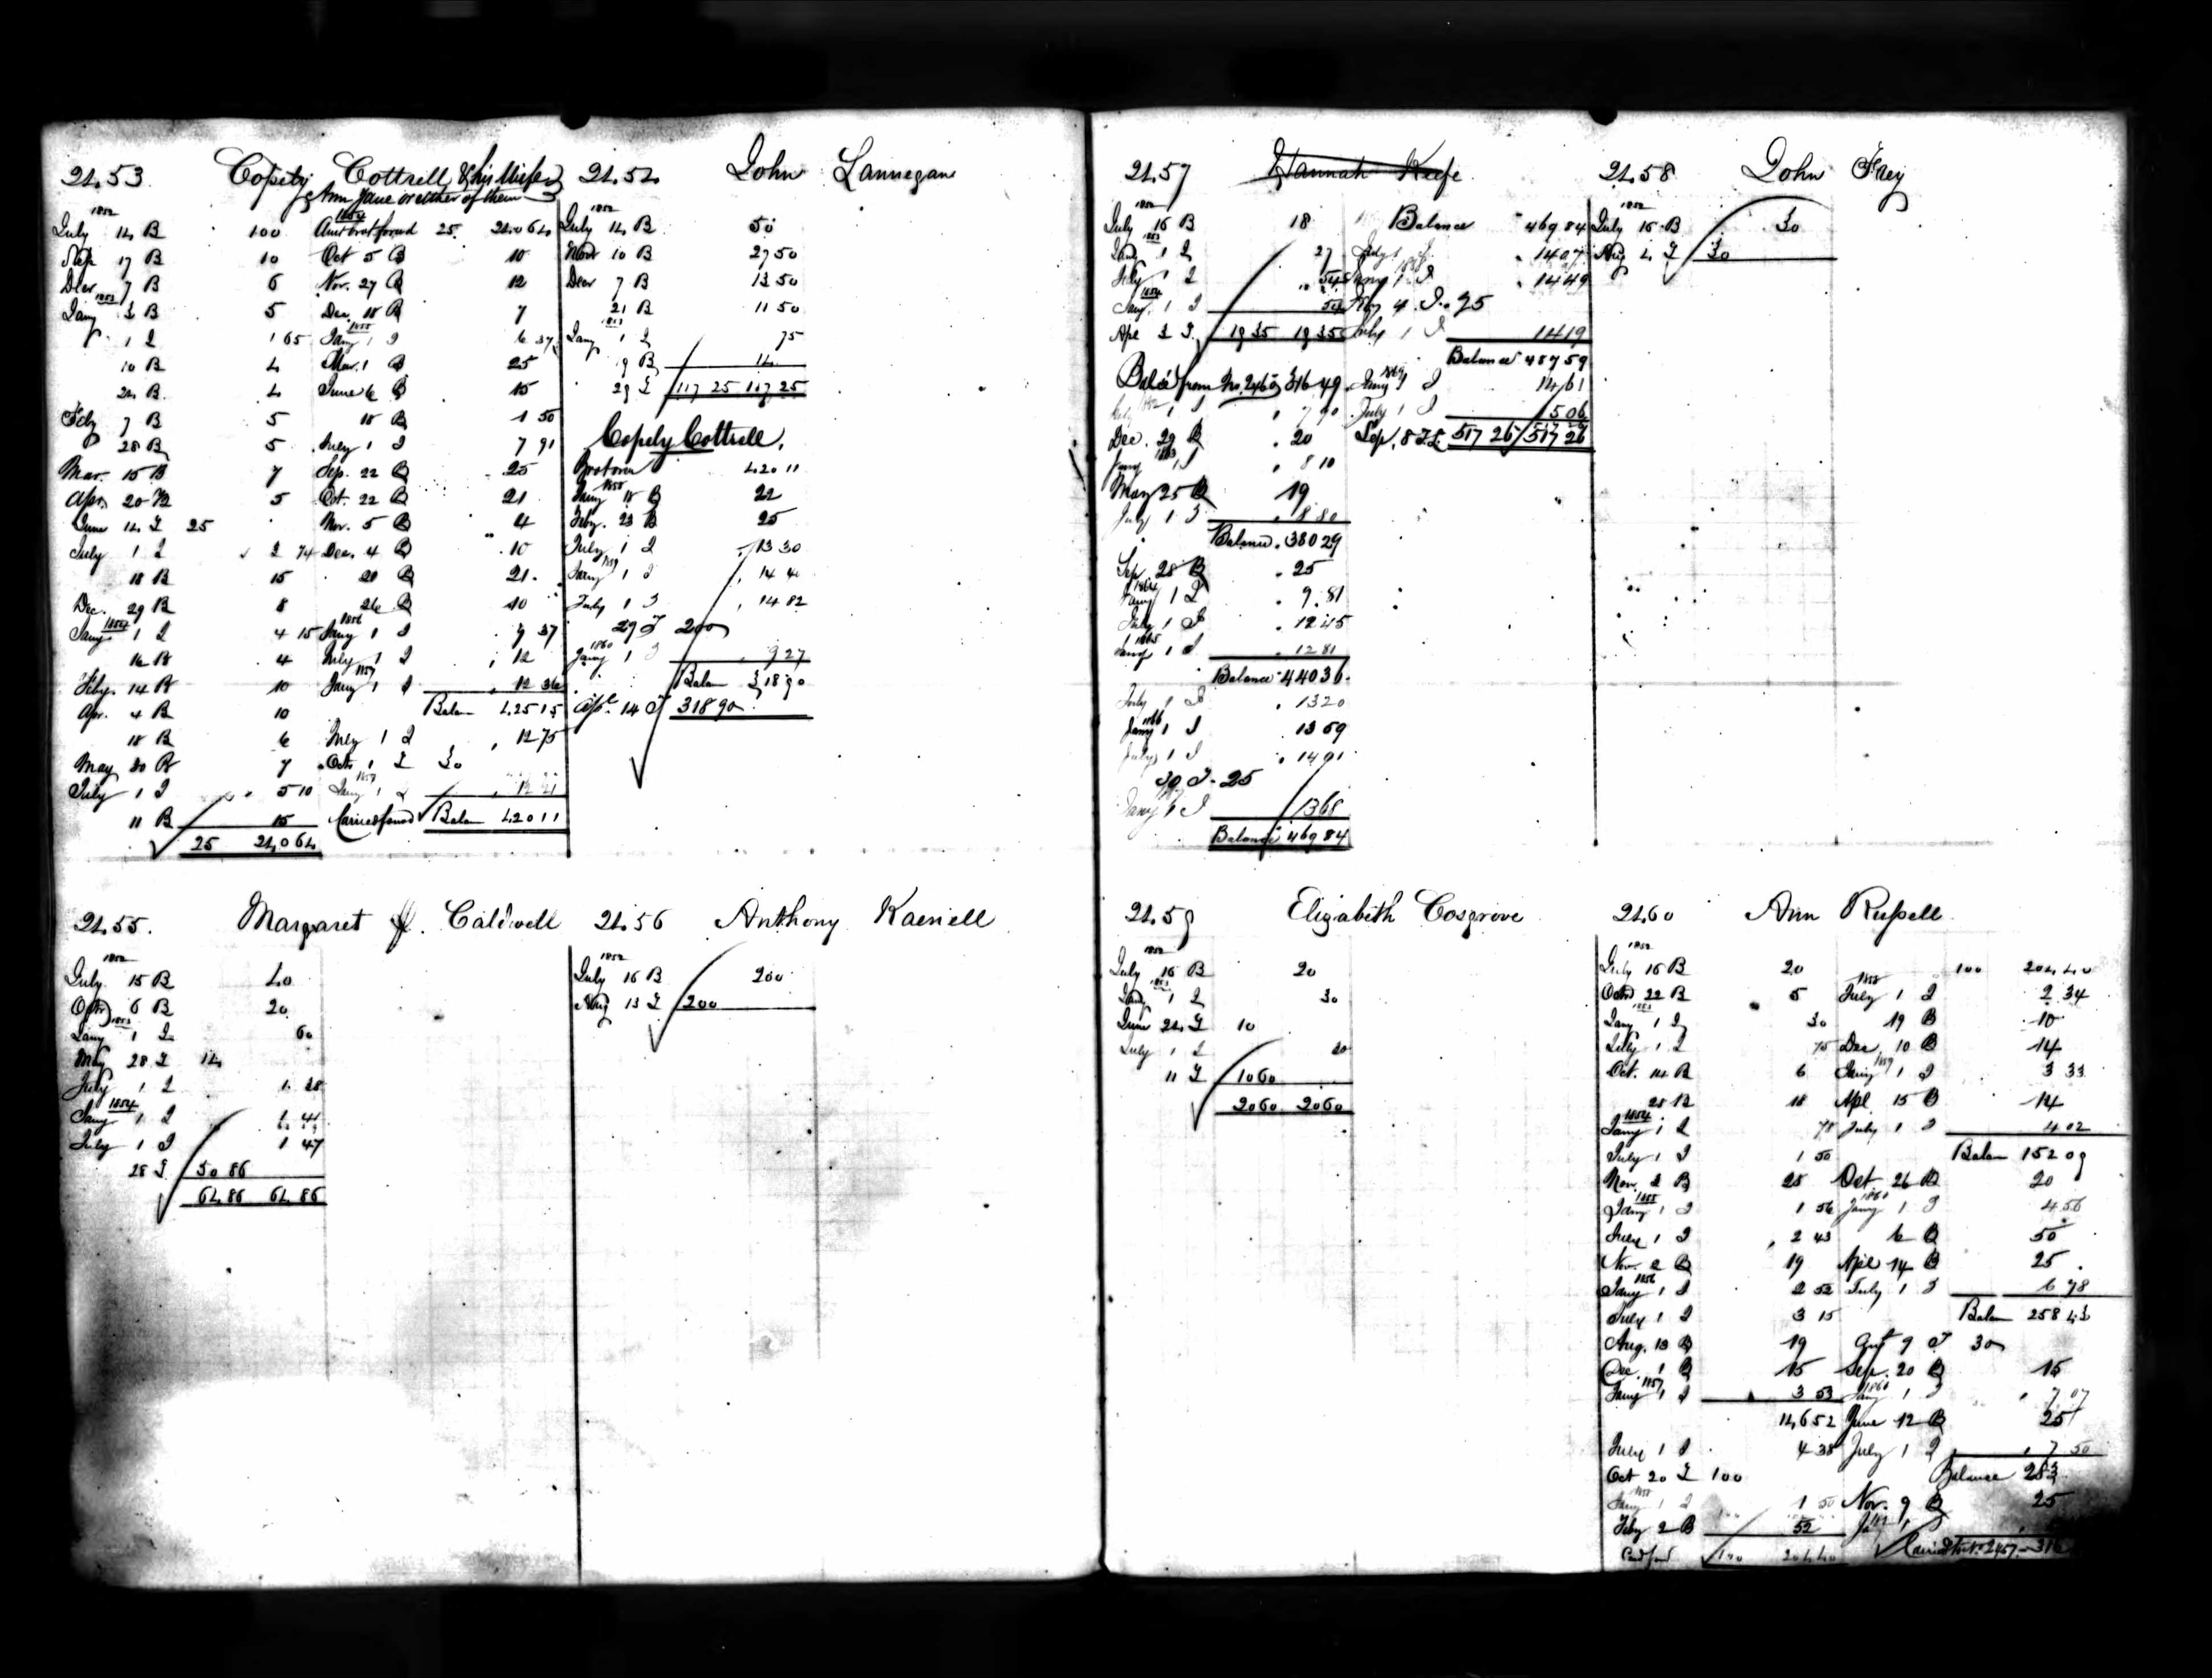 2453 Copely Cottrell & his Wife
Ann Jane or either of them
1852
July 14 B 100
Sep 17 B 10
Decr 7 B 6
1853
Jany 3 B 5
1 I 1 65
10 B 4
24 B 4
Feby 7 B 5
28 B 5
Mar. 15 B 7
Apr. 20 B 5
June 14 T 25
July 1 I 2 74
18 B 15
Dec. 29 B 8
1854
Jany 1 I 4 15
16 B 4
Feby. 14 B 10
Apr. 4 B 10
18 B 6
May 30 B 7
July 1 I 5 10
11 B 15
25 240 64
1854
Amt brot forwd 25 240 64
Oct 5 B 10
Nov. 27 B 12
Dec. 18 B 7
1855
Jany 1 I 6 37
Mar. 1 B 25
June 6 B 15
18 B 1 50
July 1 I 7 91
Sep. 22 B 25
Oct. 22 B 21
Nov. 5 B 4
Dec. 4 B 10
20 B 21
26 B 10
1856
Jany 1 I 9 37
July 1 I 12
1857
Jany 1 I 12 36
Balan 425 15
July 1 I 12 75
Octr 1 T 30
Jany 1 I 12 21
Carried forwd Balan 420 11
2454 John Lannegan
1852
July 14 B 50
Novr 10 B 27 50
Decr 7 B 13 50
21 B 11 50
1853
Jany 1 I 75
9 B 14
29 T 117 25 117 25
Copely Cottrell.
Brot over 420 11
1858
Jany 18 B 22
Feby. 23 B 25
July 1 I 13 30
1859
Jany 1 I 14 40
July 1 I 14 82
29 T 200
1860
Jany 1 I 9 27
Balan 318 90
Apl. 14 T 318 90
2455. Margaret J. Caldwell
1852
July 15 B 40
Octr 6 B 20
1853
Jany 1 I 60
May 28 T 14
July 1 I 1 38
1854
Jany 1 I 1 41
July 1 I 1 47
28 T 50 86
64 86 64 86
2456 Anthony
1852
July 16 B 200
Aug 13 T 200
2457 Hannah Keefe
1852
July 16 B 18
1853
Jany 1 I 27
July 1 I 54
1854
Jany. 1 I 54
Apl 3 T. 19 35 19 35
Balce from No. 2460 316 49
July 1 I 7 90
Dec. 29 B 20
1863
Jany 1 I 8 10
May 25 B 19
July 1 I 8 80
Balance 380 29
Sep 28 B 25
1864
Jany 1 I 9.81
July 1 I 12 45
1865
Jany 1 I 12 81
Balance 440 36
July 1 I 13 20
1866
Jany 1 I 13 59
July 1 I 14 01
30 T 25
Jany 1 I 13 68
Balance 469 84
Balance 469 84
July 1 I 14 07
1868
Jany 1 I 14 49
May 4 T 25
July 1 I 14 19
Balance 487 59
1869
Jany 1 I 14 61
July 1 I 15 06
Sep. 8 T 517 26 517 26
2458 John Frey
1852
July 16 B 30
Aug 4 T 30
2459 Elizabeth Cosgrove
1852
July 16 B 20
1853
Jany 1 I 30
June 24 T 10
July 1 I 30
11 T 10 60
20 60 20 60
2460 Ann Russell
1852
July 16 B 20
Octr 22 B 5
1853
Jany 1 I 30
July 1 I 75
Oct. 14 B 6
28 B 18
1854
Jany 1 I 78
July 1 I 1 50
Nov. 2 B 25
1855
Jany 1 I 1 56
July 1 I 2 43
Nov. 2 B 19
1856
Jany 1 I 2 52
July 1 I 3 15
Aug. 13 B 19
Dec. 1 B 15
1857
Jany 1 I 3 53
146 52
July 1 I 4 38
Oct 20 T 100
1858
Jany 1 I 1 50
Feby 2 B 52
Card ford 100 204 40
100 204 40
1858
July 1 I 2 34
19 B 10
Dec. 10 B 14
1859
Jany 1 I 3 33
Apl 15 B 14
July 1 I 4 02
Balan 152 09
Oct 26 B 20
1860
Jany 1 I 4 56
6 B 50
Apl 14 B 25
July 1 I 6 78
Balan 258 43
Augt 9 T 30
Sep. 20 B 15
Jany 1 I 7 07
June 12 B 25
July 1 I 7 50
Balance 283
Nov. 9 B 25
Carried to No. 2457